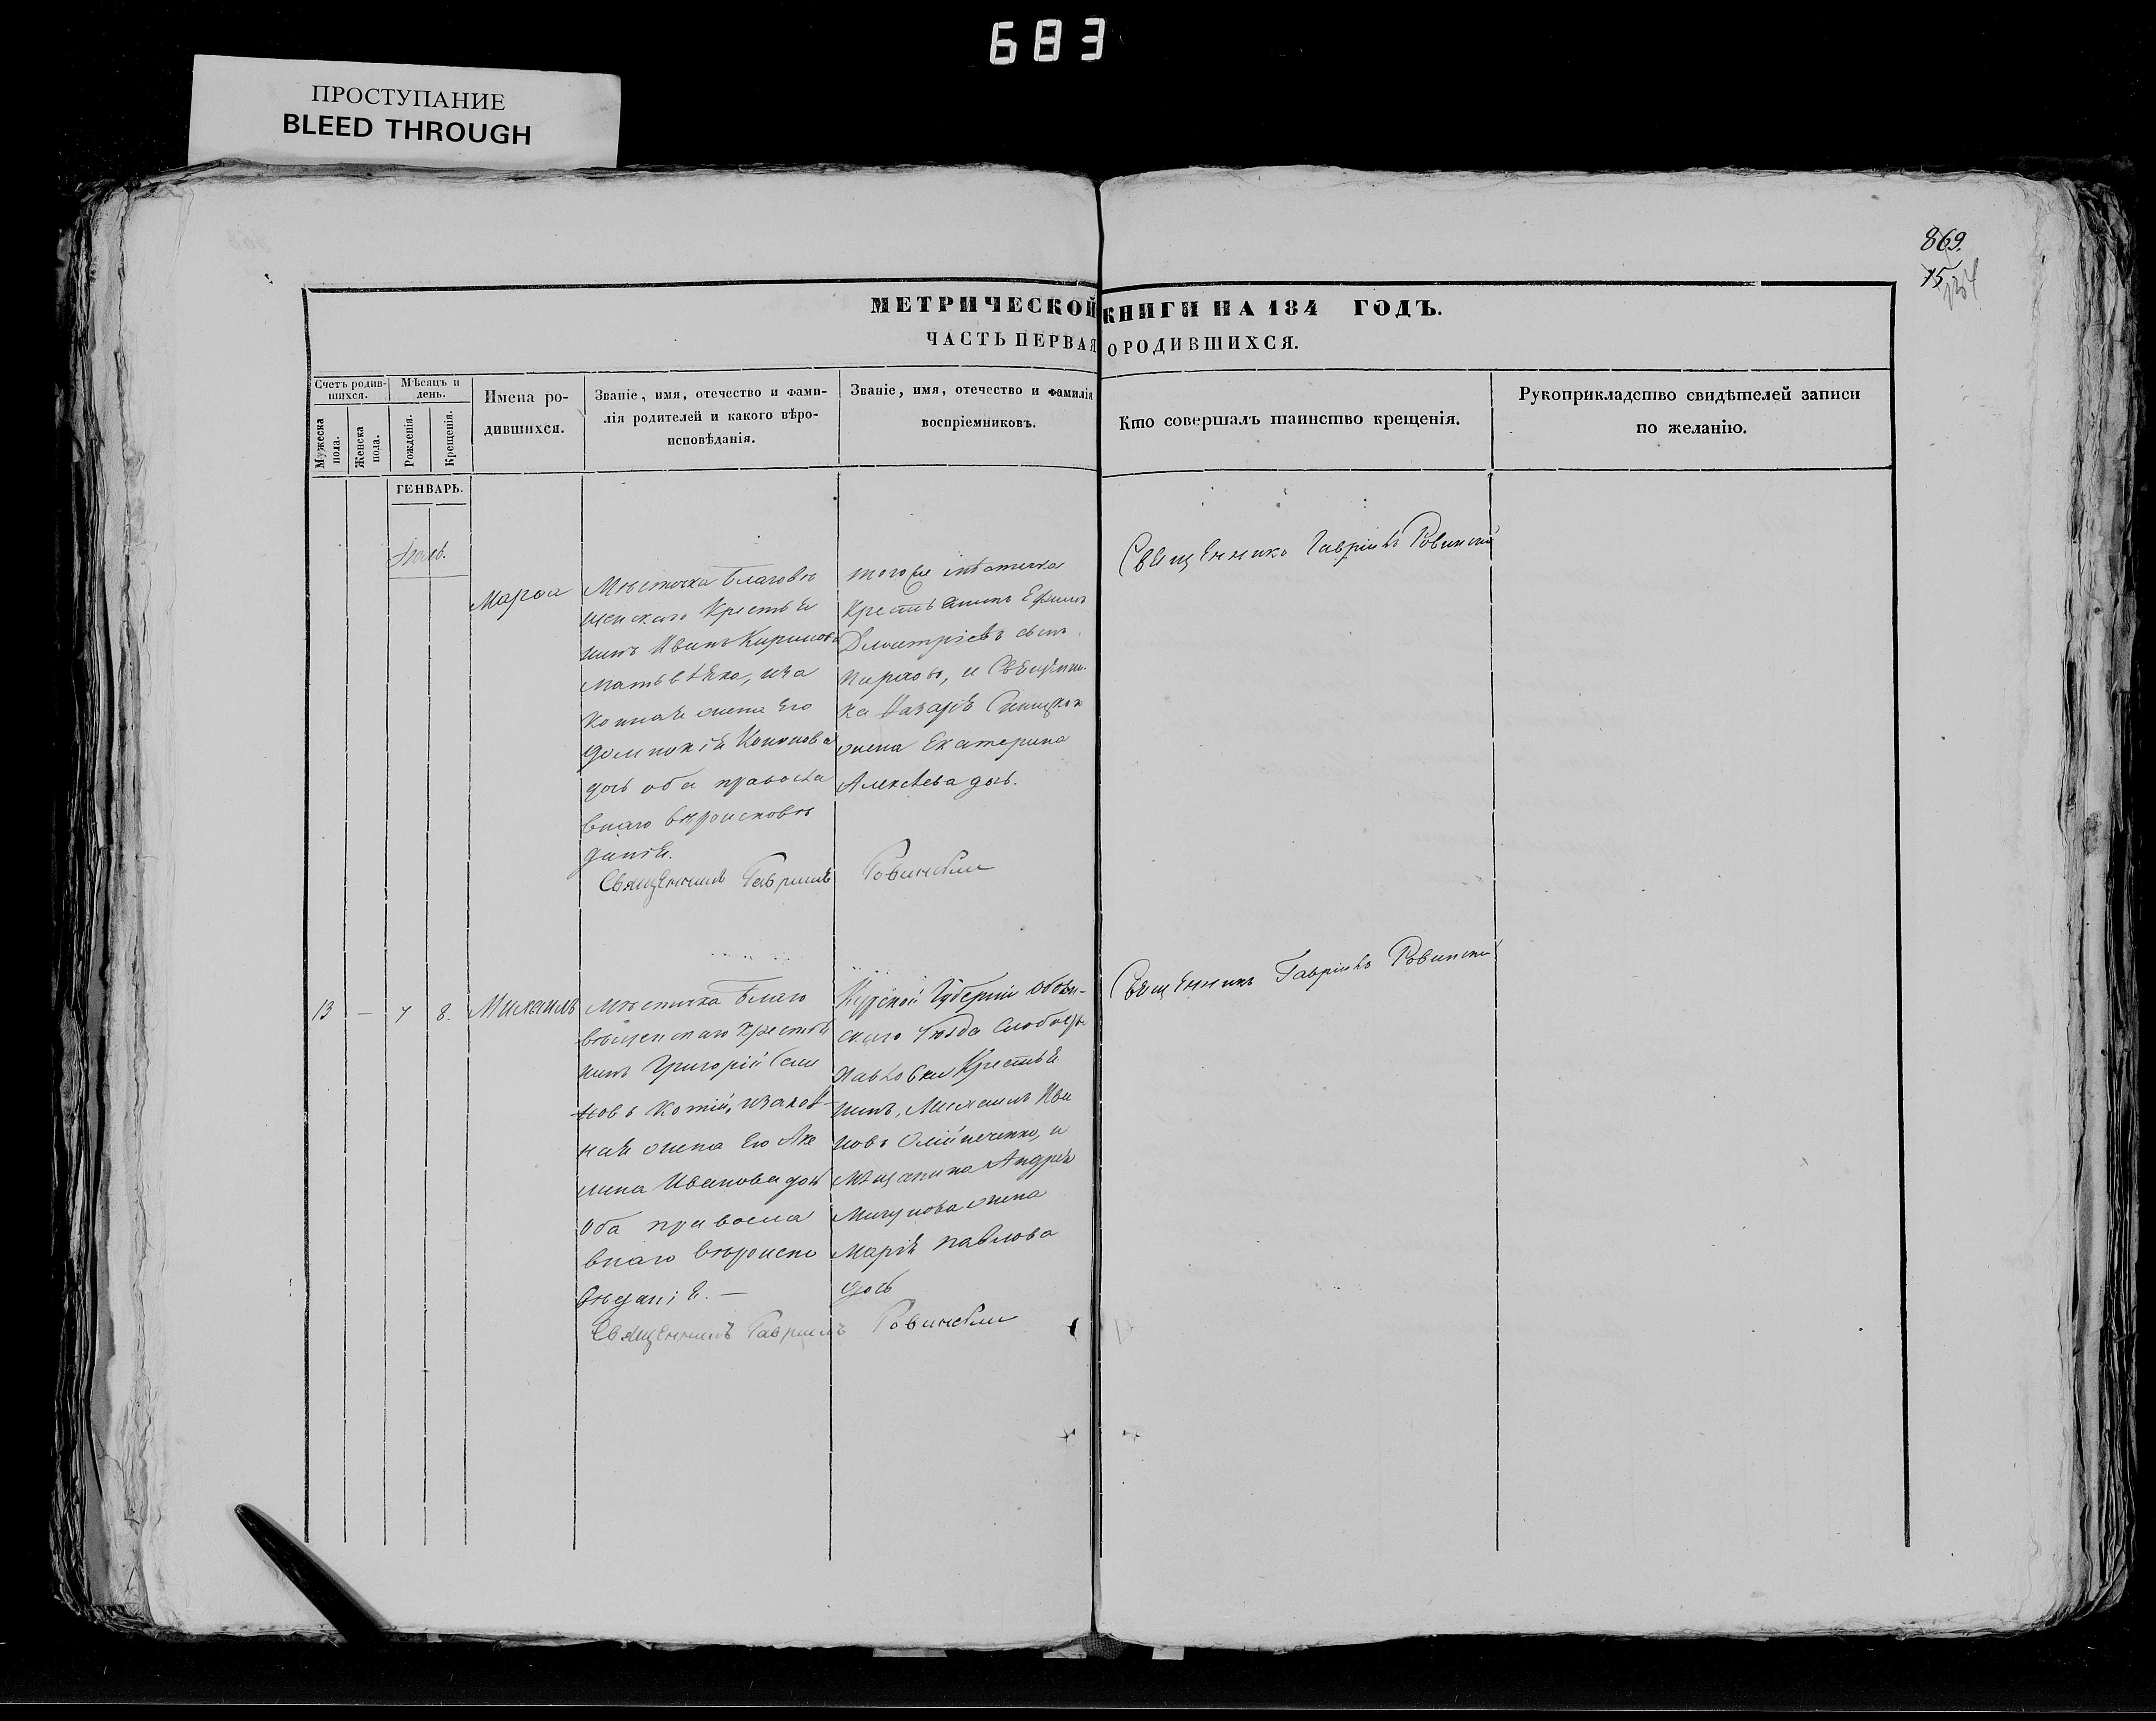 683
ПРОСТУПАНИЕ
BLEED THROUGH
869.
15
МЕТРИЧЕСКОЙ КНИГИ НА 184 ГОДЪ.
ЧАСТЬ ПЕРВАЯ О РОДИВШИХСЯ.
Счетъ родив-
шихся.
Мужеска
пола.
Женска
пола.
Мѣсяцъ и
день.
Рожденія.
Крещенія.
Имена ро-
дившихся.
Званіе, имя, отечество и фами-
лія родителей и какого вѣро-
исповѣданія.
Званіе, имя, отечество и фамилія
воспріемниковъ.
Кто совершалъ таинство крещенія.
Рукоприкладство свидѣтелей записи
по желанію.
ГЕНВАРЬ.
Марѳа
Мѣстечка Благовѣ
щенскаго Крестья
нинъ Иванъ Кириловъ
Матьвѣенко, иза
конная жена Его
Домникія Кононова
дочь оба правосла
внаго вѣроисповѣ
данія.
тогоже мѣстечка
Крестьянинъ Ефимъ
Дмитріевъ сынъ
и Священни-
ка Назарія
жена Екатерина
Алексѣева дочь.
Священникъ Гавріилъ Ровинскій
Священникъ Гавріилъ Ровинскій
13 — 7 8. Михаилъ
Мѣстечка Благо
вѣщенскаго Крестья
нинъ Григорій Сим
новъ изакон
ная жена Его Аке
лина Иванова дочь
Оба правосла
внаго вѣроиспо
вѣданія. —
Курской Губерніи Обоян-
скаго Уѣзда Слободы
Крестья
нинъ, Михаилъ Ива
новъ Олійниченко, и
Мѣщанина Андрея
жена
Марія Павлова
дочь
Священникъ Гавріилъ Ровинскій
Священникъ Гавріилъ Ровинскій